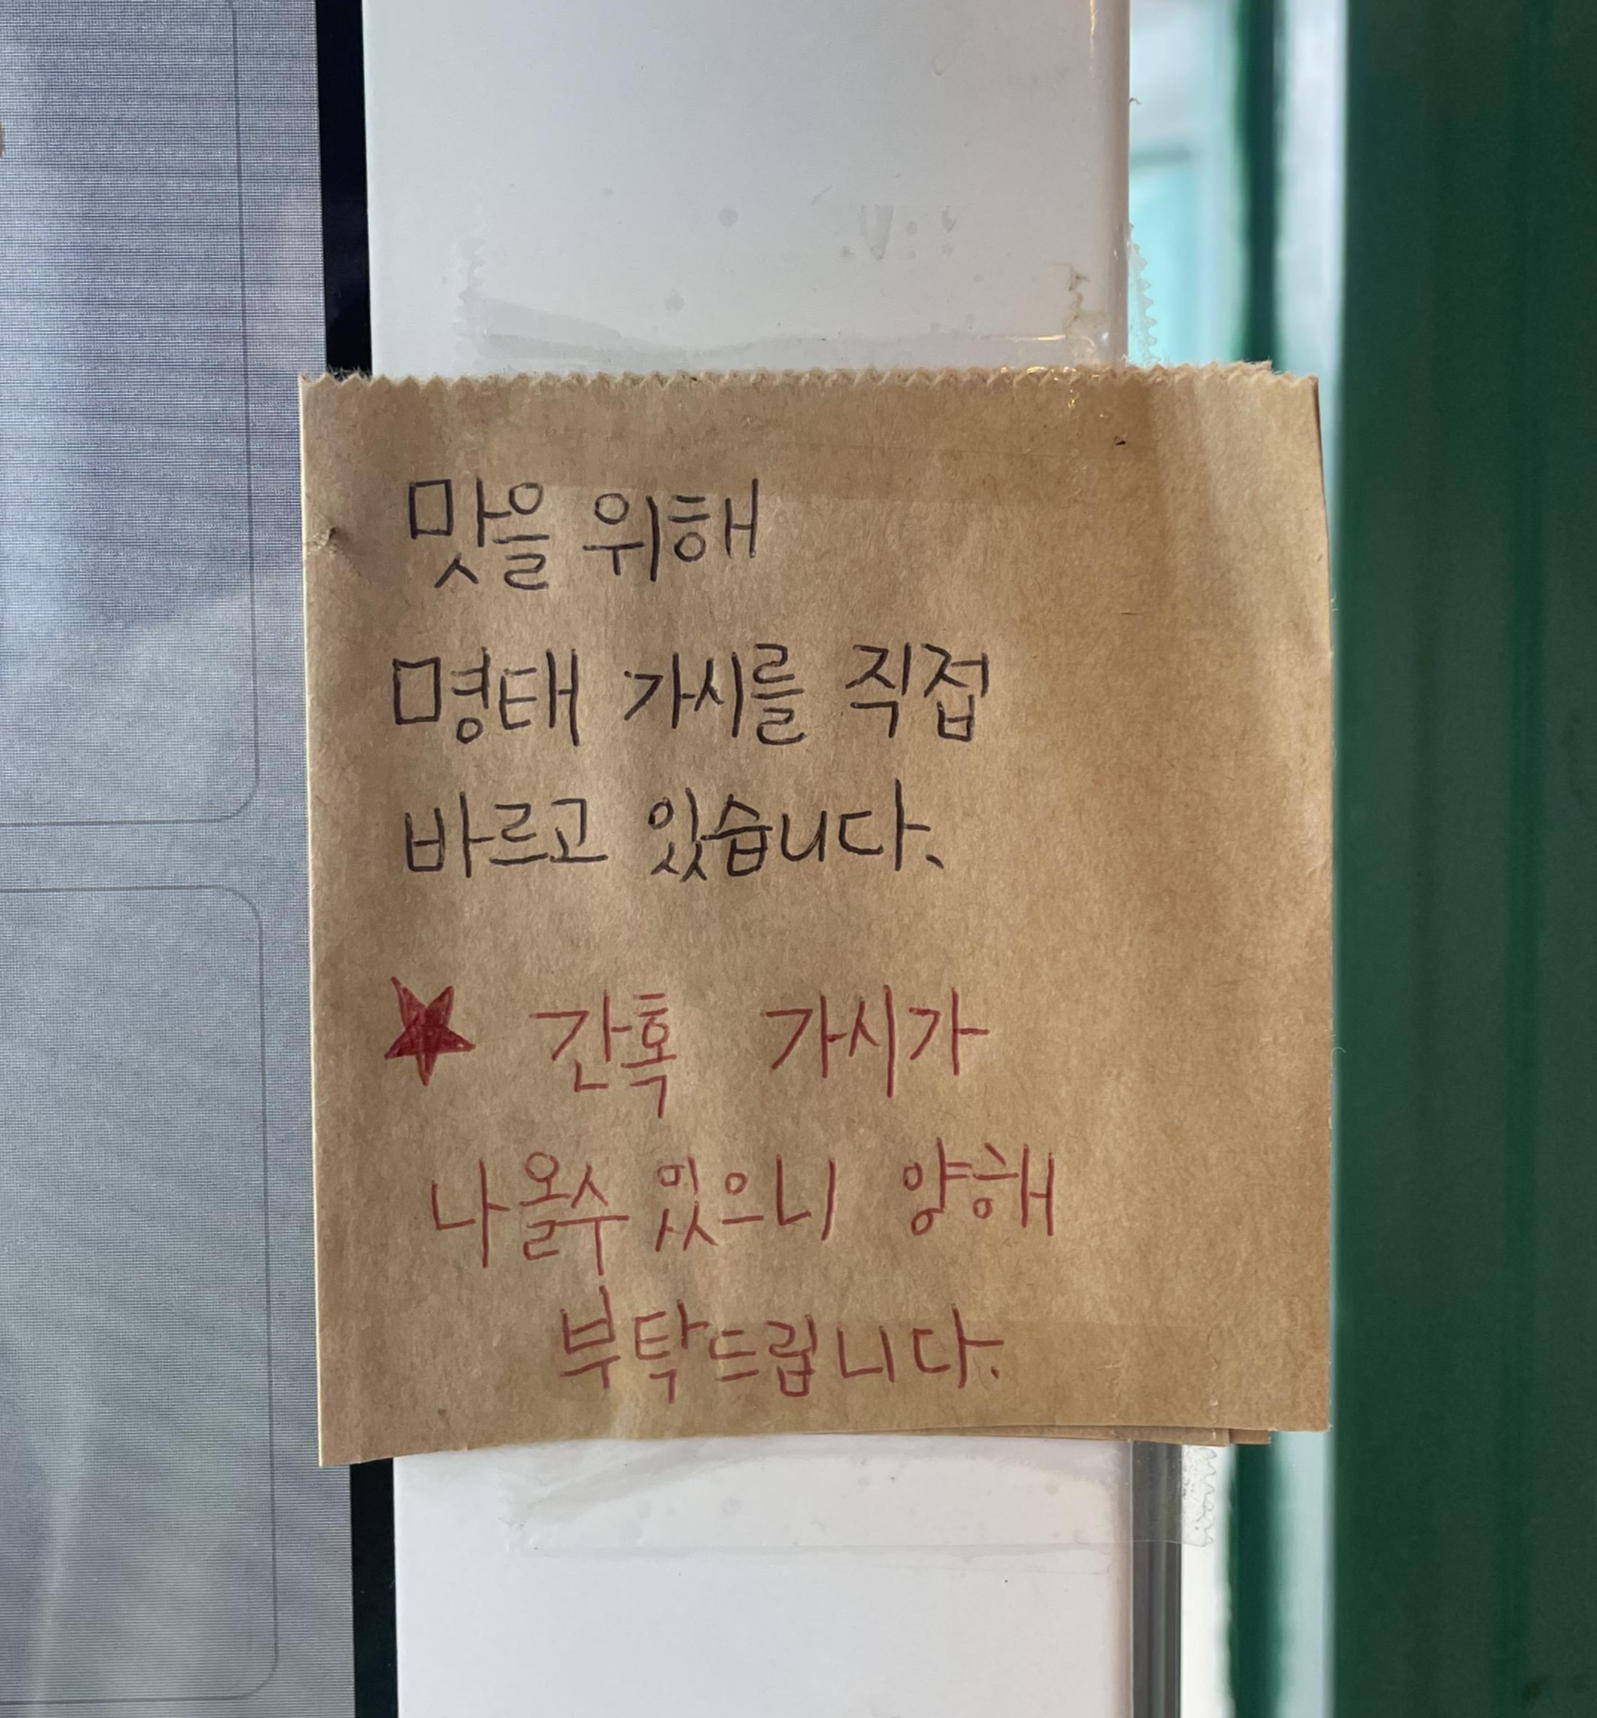 맛을 위해
명태 가시를 직접
바르고 있습니다.
★ 간혹 가시가
나올수 있으니 양해
부탁드립니다.